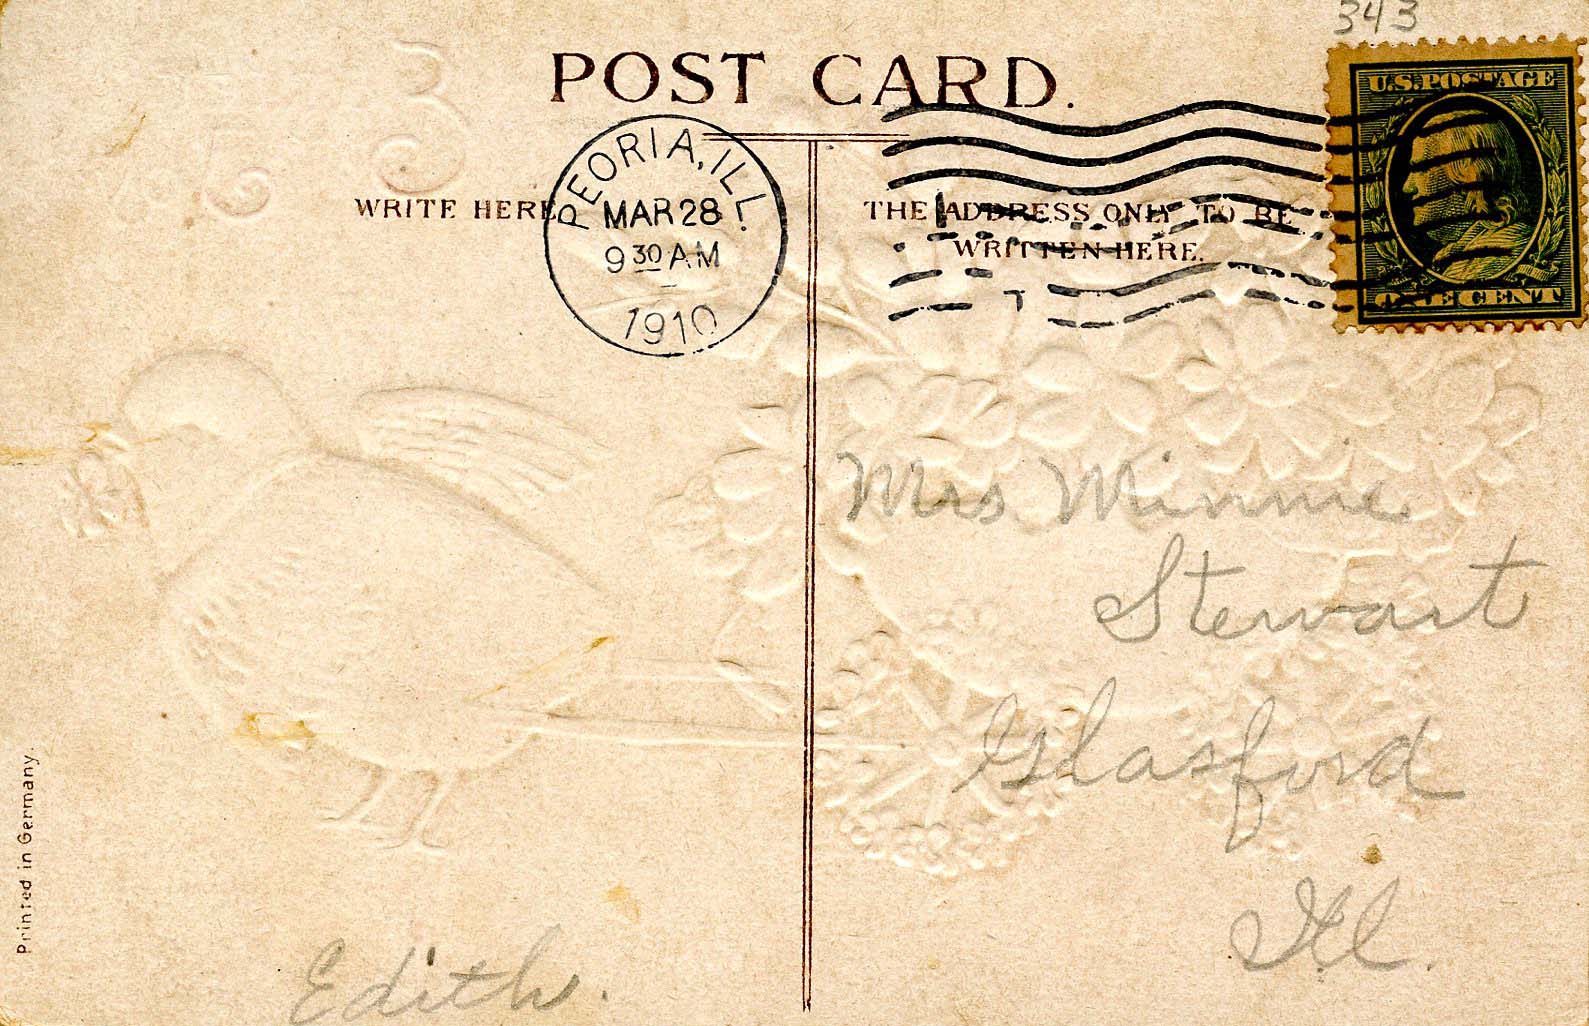 343
POST CARD.
U.S. POSTAGE
ONE CENT
PEORIA, ILL.
MAR 28
9 30 AM
1910
WRITE HERE
THE ADDRESS ONLY TO BE
WRITTEN HERE.
Mrs Minnie
Stewart
Glasford
Ill.
Edith.
Printed in Germany.